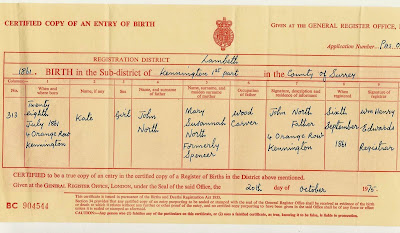 CERTIFIED COPY OF AN ENTRY OF BIRTH
GIVEN AT THE GENERAL REGISTER OFFICE,
Application Number
REGISTRATION DISTRICT Lambeth
1861. BIRTH in the Sub-district of Kennington 1st part in the County of Surrey
Columns:- 1 2 3 4 5 6 7 8 9
No. When and where born Name, if any Sex Name, and surname of father Name, surname, and maiden surname of mother Occupation of father Signature, description and residence of informant When registered Signature of registrar
313
Twenty eighth July 1861 4 Orange Row Kennington
Kate
Girl
John North
Mary Susannah North Formerly Spencer
Wood Carver
John North Father 4 Orange Row Kennington
Sixth September 1861
Wm Henry Edwards Registrar
CERTIFIED to be a true copy of an entry in the certified copy of a Register of Births in the District above mentioned.
Given at the GENERAL REGISTER OFFICE, LONDON, under the Seal of the said Office, the 20th day of October 1975.
BC 904544
This certificate is issued in pursuance of the Births and Deaths Registration Act 1953.
CAUTION:—Any person who (1) falsifies any of the particulars on this certificate, or (2) uses a falsified certificate as true, knowing it to be false, is liable to prosecution.